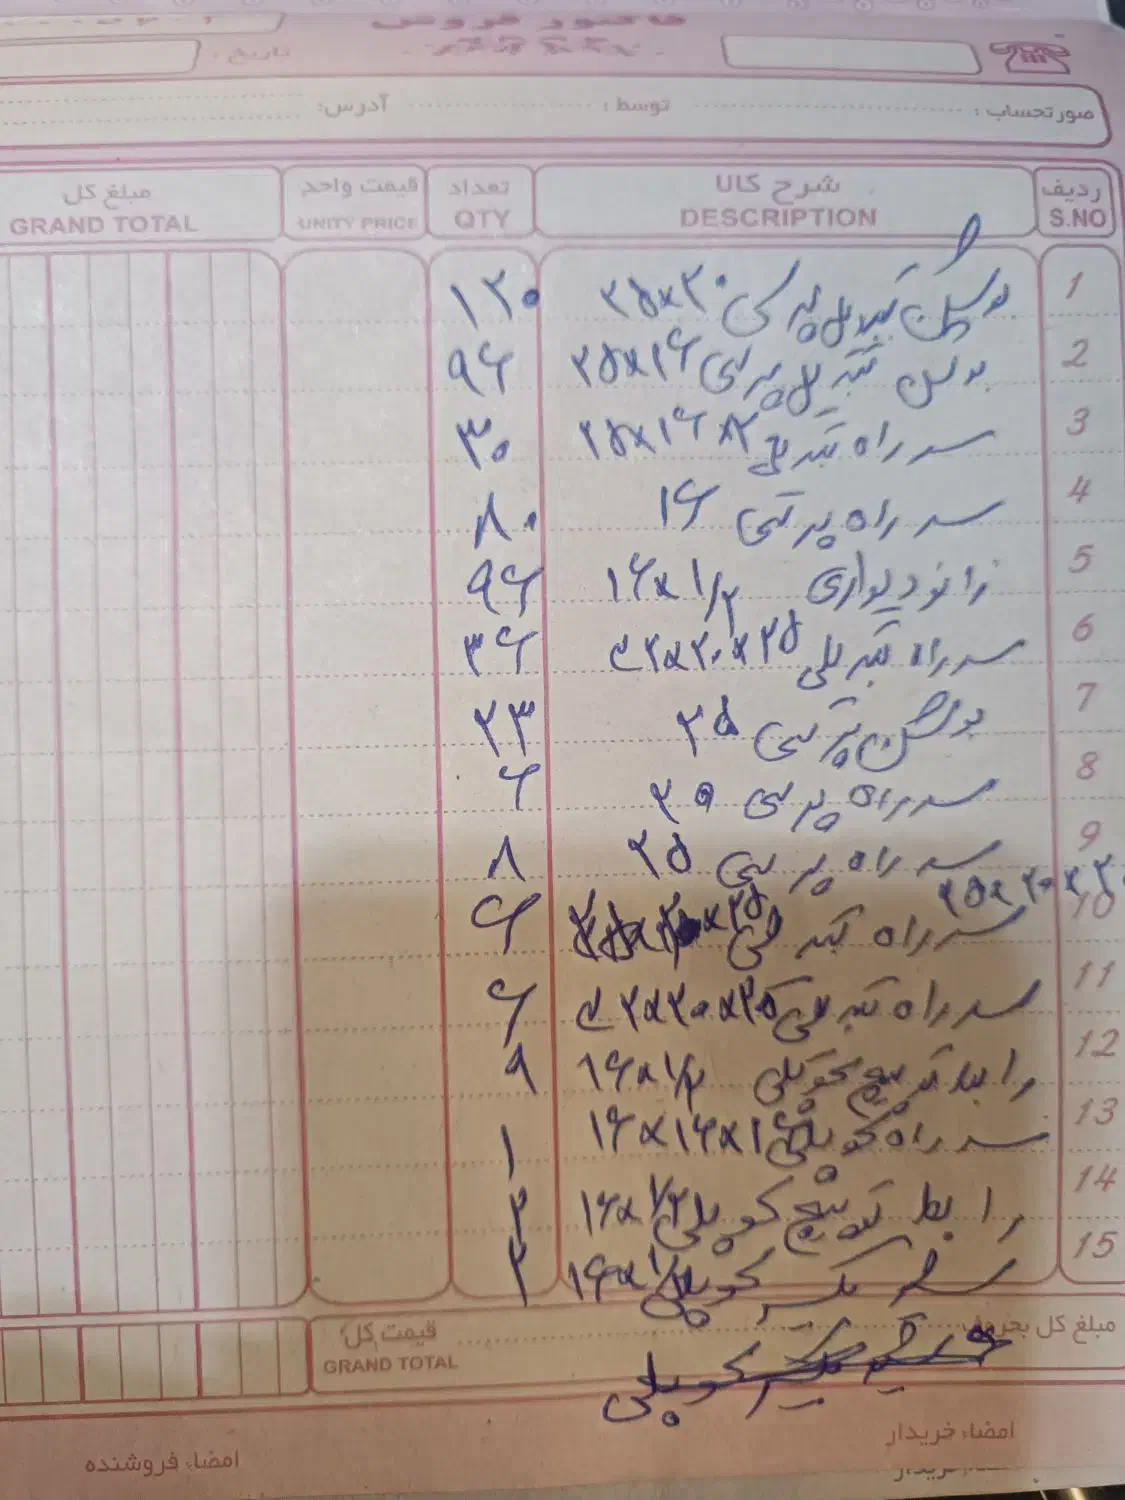 فاکتور فروش
تاریخ :
صورتحساب : توسط : آدرس:
ردیف شرح کالا تعداد قیمت واحد مبلغ کل
S.NO DESCRIPTION QTY UNITY PRICE GRAND TOTAL
1 بوشن تبدیل پرسی ۲۵×۲۰ ۱۲۰
2 بوشن تبدیل پرسی ۲۵×۱۶ ۹۶
3 سه راه تبدیلی ۲۵×۱۶× ۳۰
4 سه راه پرسی ۱۶ ۸۰
5 زانو دیواری ۱۶×۱/۲ ۹۶
6 سه راه تبدیلی ۳۲×۲۰×۲۵ ۳۶
7 بوشن پرسی ۲۵ ۲۳
8 سه راه پرسی ۲۰ ۶
9 سه راه پرسی ۲۵ ۸
۲۵×۲۰×۲۰
10 سه راه تبدیلی ۶
11 سه راه تبدیلی ۳۲×۲۰× ۶
12 رابط توپیچ کوپلی ۱۶×۱/۲ ۹
13 سه راه کوپلی ۱۶×۱۶×۱۶ ۱
14 رابط توپیچ کوپلی ۱۶×۱/۲ ۲
15 کوپلی ۱۶×۱/۲ ۲
مبلغ کل بحروف قیمت کل
GRAND TOTAL
کوپلی
امضاء خریدار امضاء فروشنده